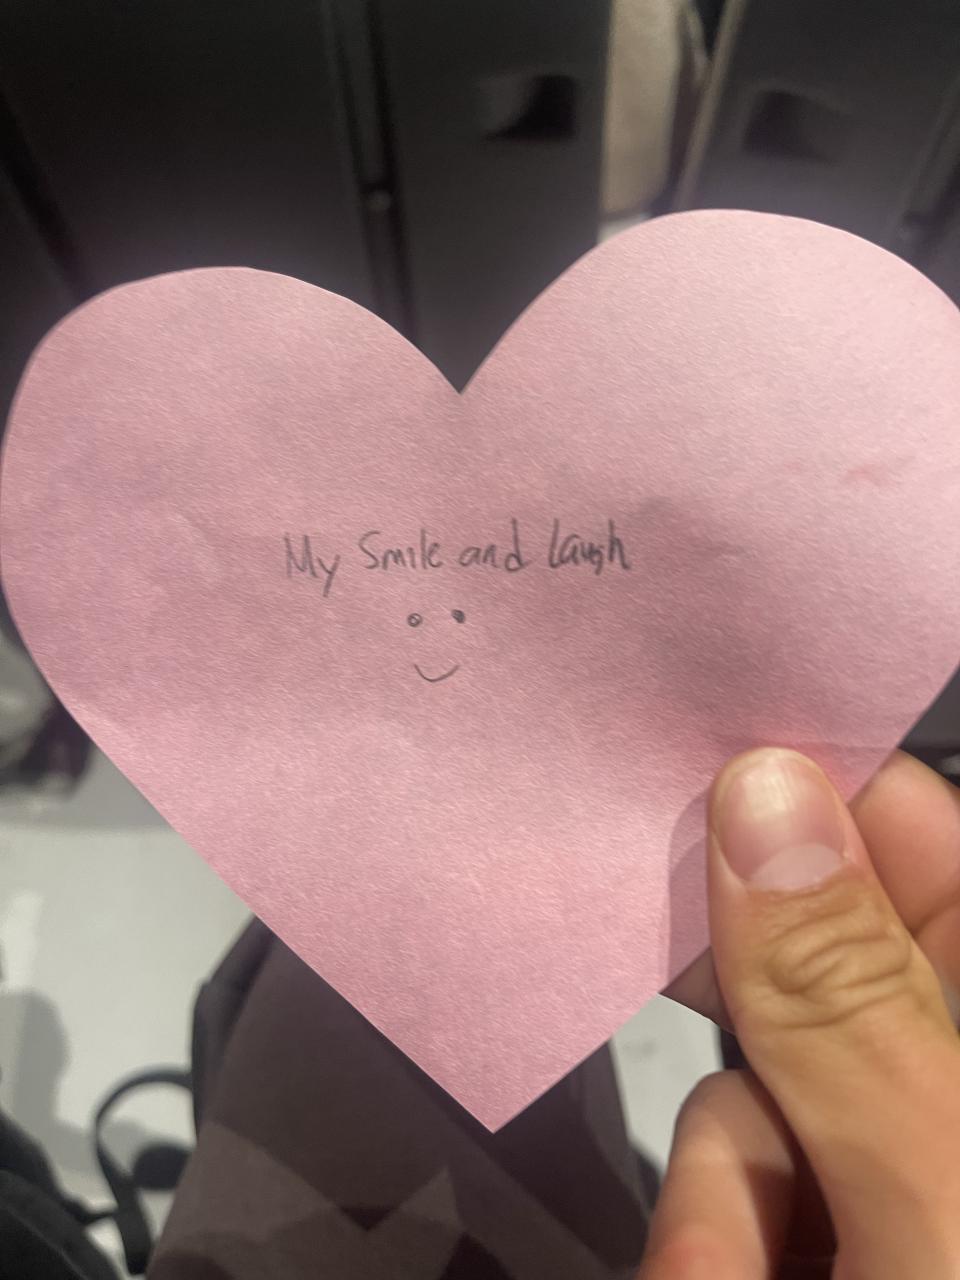 My Smile and laugh